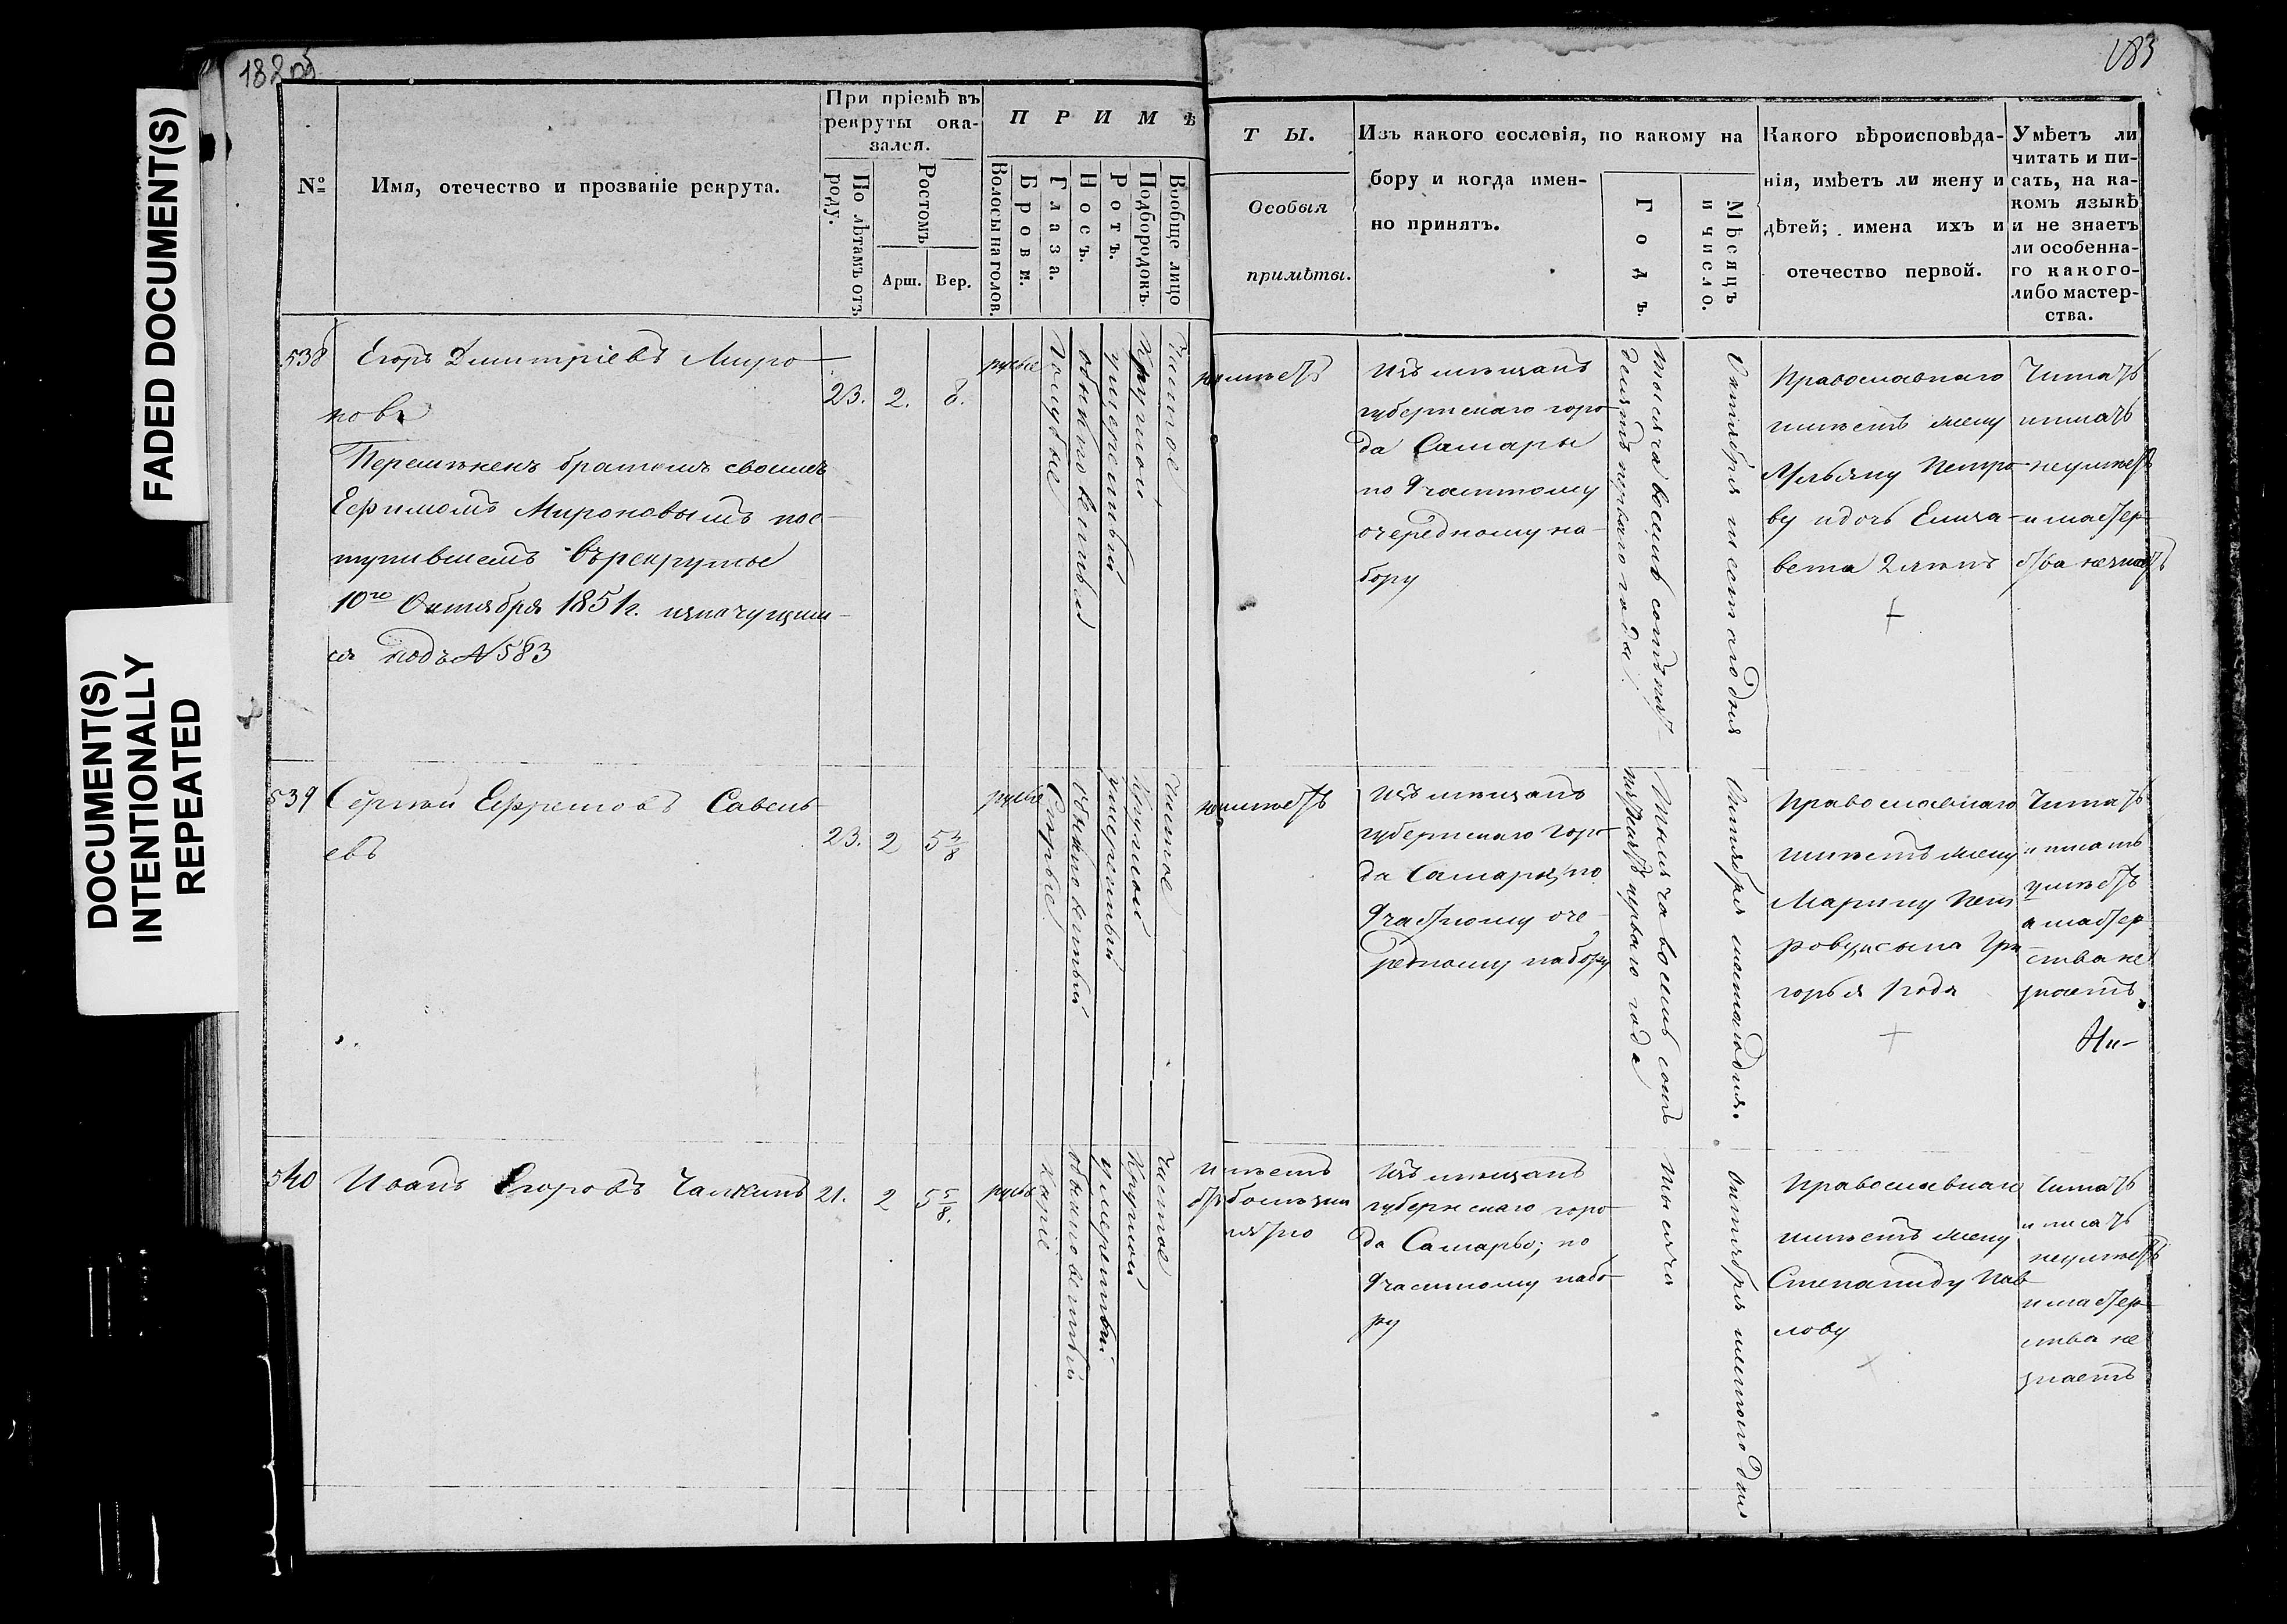 FADED DOCUMENT(S)
DOCUMENT(S)
INTENTIONALLY
REPEATED
183
№
Имя, отечество и прозваніе рекрута.
При пріемѣ въ
рекруты ока-
зался.
По лѣтамъ отъ
роду.
Ростомъ
Арш.
Вер.
П Р И М Ѣ
Волосы на голов.
Брови.
Глаза.
Носъ.
Ротъ.
Подбородокъ.
Вообще лицо
Т Ы.
Особыя
примѣты.
Изъ какого сословія, по какому на
бору и когда имен-
но принятъ.
Годъ.
Мѣсяцъ
и число.
Какого вѣроисповѣда-
нія, имѣетъ ли жену и
дѣтей; имена ихъ и
отечество первой.
Умѣетъ ли
читать и пи-
сать, на ка-
комъ языкѣ
и не знаетъ
ли особенна-
го какого-
либо мастер-
ства.
538
Егоръ Дмитріевъ Миро
новъ
Перемѣненъ братомъ своимъ
Ефимомъ Мироновымъ пос-
тупившемъ въ рекруты
10го Октября 1851 г.
ся подъ N 583
23.
2.
8.
русые
Голубые
обыкновенный
умеренный
Круглой
Чистое
неимѣетъ
Изъ мѣщанъ
губернскаго горо
да Самары
по 9 частному
очередному на-
бору
тысяча восемь сотъ пят-
десятъ перваго года.
Октября шестаго дня
Православнаго
имѣетъ жену
Ульяну Петро-
ву и дочь Елиза-
вета 2 лѣтъ
Читать
писать
неумѣетъ
и мастер-
ства незнаетъ
539
Сергѣй Ефремовъ Савель
евъ
23.
2
5 3/8
русые
Скарые
обыкновенный
умеренный
Круглой
Чистое
неимѣетъ
Изъ мѣщанъ
губернскаго горо-
да Самары, по
9 частному оче-
редному набору
Тысяча восемь сотъ
пятдесятъ перваго года
Октября шестаго дня.
Православнаго
имѣетъ жену
Марину Пет
рову, и сына Гри
горья 1 года
Читать
и писать
умѣетъ
а мастер
ства не
знаетъ.
Ни-
540
Иванъ Егоровъ Чалкинъ
21.
2
5 5/8.
русые
Каріе
обыкновенный
умеренный
Круглой
Чистое
имѣетъ
Изъ мѣщанъ
губернскаго горо
да Самары; по
9 частному набо-
ру
тысяча
Октября шестого дня
Православнаго
имѣетъ жену
Степаниду Пав
лову
Читать
и писать
неумѣетъ
и мастер-
ства не
знаетъ